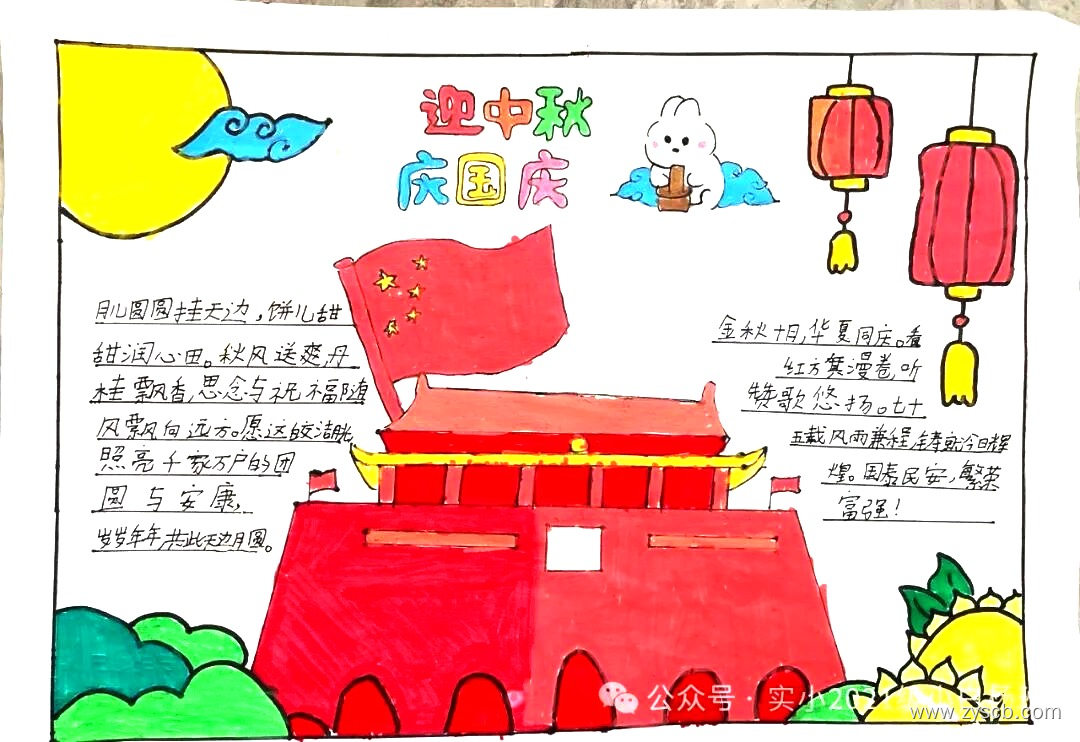 迎中秋
庆国庆
月儿圆圆挂天边,饼儿甜
甜润心田。秋风送爽,丹
桂飘香,思念与祝福随
风飘向远方。愿这皎洁
照亮千家万户的团
圆与安康,
岁岁年年,共此天边月圆。
金秋十月,华夏同庆。看
红方集漫卷,听
赞歌悠扬。七十
五载风雨兼程,铸就今日辉
煌。国泰民安,繁荣
富强!
公众号·实小2021
www.zyscb.com